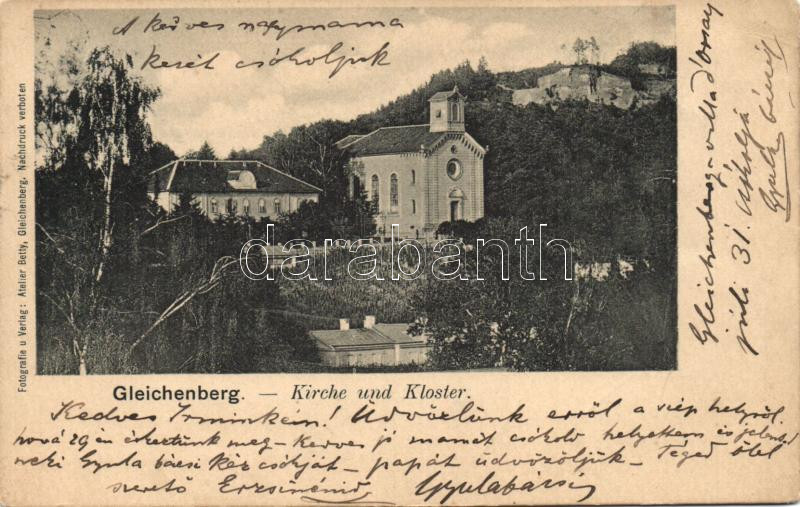 A kedves nagymama
kezét csókoljuk
Fotografie u Verlag: Atelier Betty, Gleichenberg. Nachdruck verboten
darabanth
Gleichenberg. — Kirche und Kloster.
Kedves Irminkém! Üdvözlünk erről a szép helyről
hová 29én érkeztünk meg – kedves jó mamát csókold helyettem és jelentsd
neki Gyula bácsi kézcsókját – papát üdvözöljük – Téged ölel
szerető Erzsinénid Gyulabácsi
Gleichenberg villa d'Orsay
júli 31.
Gyula bácsi